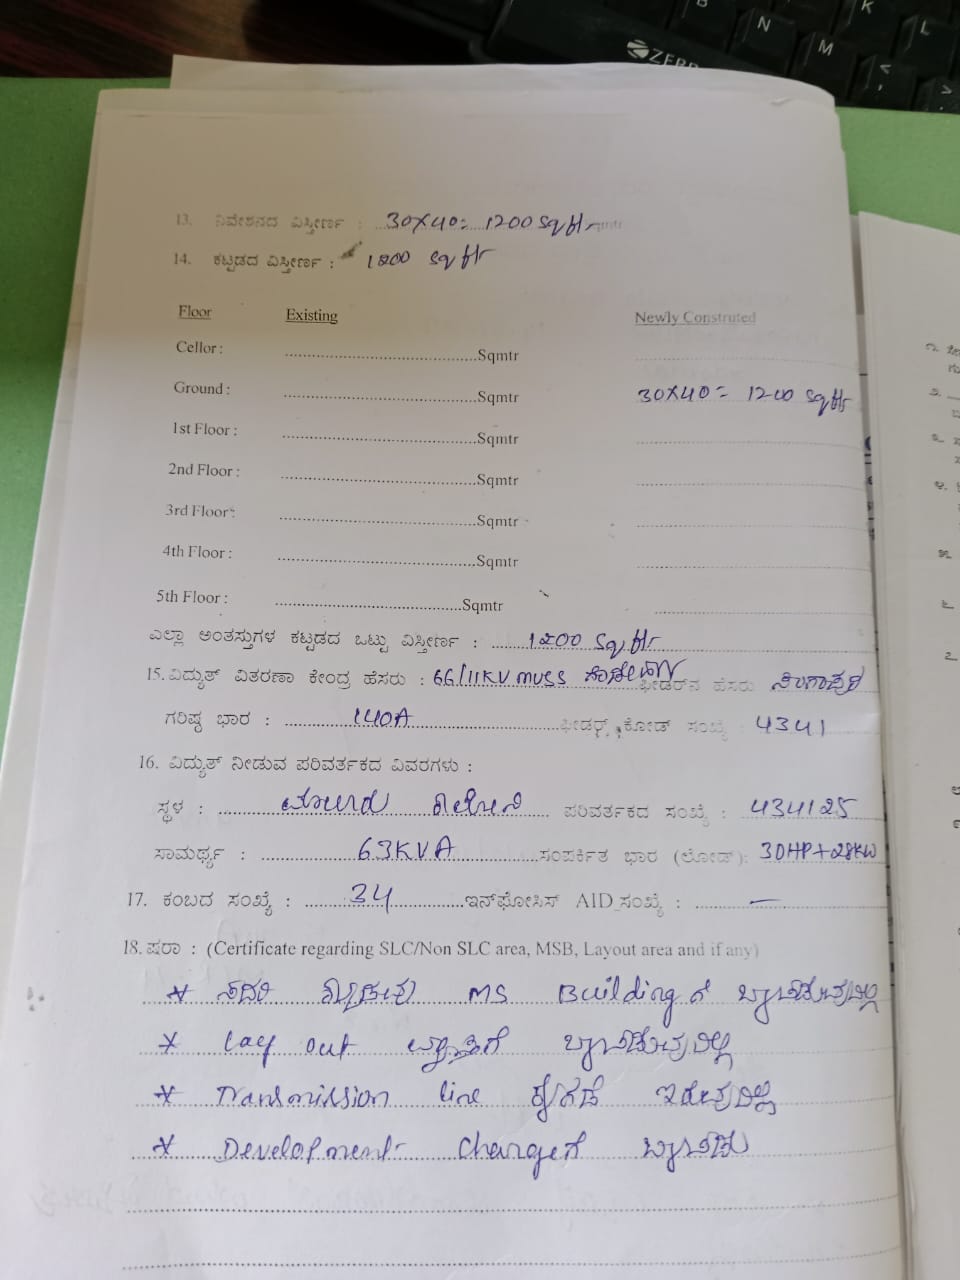 B N M K L < >
ZEBR
13. ನಿವೇಶನದ ವಿಸ್ತೀರ್ಣ : 30X40= 1200 sq ftr mtr
14. ಕಟ್ಟಡದ ವಿಸ್ತೀರ್ಣ : 1200 sq ftr
Floor Existing Newly Construted
Cellor : ........Sqmtr
Ground : ........Sqmtr 30X40= 1200 sq ftr
1st Floor : ........Sqmtr
2nd Floor : ........Sqmtr
3rd Floor : ........Sqmtr
4th Floor : ........Sqmtr
5th Floor : ........Sqmtr
ಎಲ್ಲಾ ಅಂತಸ್ತುಗಳ ಕಟ್ಟಡದ ಒಟ್ಟು ವಿಸ್ತೀರ್ಣ : 1200 sq ftr
15. ವಿದ್ಯುತ್ ವಿತರಣಾ ಕೇಂದ್ರ ಹೆಸರು : 66/11KV MUSS ಫೀಡರ್‌ನ ಹೆಸರು
ಗರಿಷ್ಠ ಭಾರ : 140A ಫೀಡರ್ ಕೋಡ್ ಸಂಖ್ಯೆ : 4341
16. ವಿದ್ಯುತ್ ನೀಡುವ ಪರಿವರ್ತಕದ ವಿವರಗಳು :
ಸ್ಥಳ : ಪರಿವರ್ತಕದ ಸಂಖ್ಯೆ : 434125
ಸಾಮರ್ಥ್ಯ : 63KVA ಸಂಪರ್ಕಿತ ಭಾರ (ಲೋಡ್): 30HP+28KW
17. ಕಂಬದ ಸಂಖ್ಯೆ : 34 ಇನ್‌ಫೋಸಿಸ್ AID ಸಂಖ್ಯೆ : —
18. ಷರಾ : (Certificate regarding SLC/Non SLC area, MSB, Layout area and if any)
* ಸದರಿ MS Building ಗೆ
* Lay out
* Transmission line ಇರುವುದಿಲ್ಲ
* Development Charges